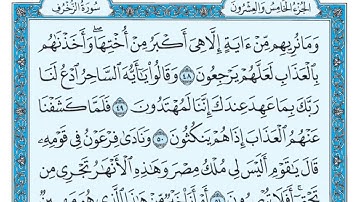 الجزء الخامس والعشرون سورة الزخرف
وَمَا نُرِيهِم مِّنْ ءَايَةٍ إِلَّا هِىَ أَكْبَرُ مِنْ أُخْتِهَا ۖ وَأَخَذْنَٰهُم
بِٱلْعَذَابِ لَعَلَّهُمْ يَرْجِعُونَ ٤٨ وَقَالُوا۟ يَٰٓأَيُّهَ ٱلسَّاحِرُ ٱدْعُ لَنَا
رَبَّكَ بِمَا عَهِدَ عِندَكَ إِنَّنَا لَمُهْتَدُونَ ٤٩ فَلَمَّا كَشَفْنَا
عَنْهُمُ ٱلْعَذَابَ إِذَا هُمْ يَنكُثُونَ ٥٠ وَنَادَىٰ فِرْعَوْنُ فِى قَوْمِهِۦ
قَالَ يَٰقَوْمِ أَلَيْسَ لِى مُلْكُ مِصْرَ وَهَٰذِهِ ٱلْأَنْهَٰرُ تَجْرِى مِن
تَحْتِىٓ ۖ أَفَلَا تُبْصِرُونَ ٥١ أَمْ أَنَا۠ خَيْرٌ مِّنْ هَٰذَا ٱلَّذِى هُوَ مَهِينٌ